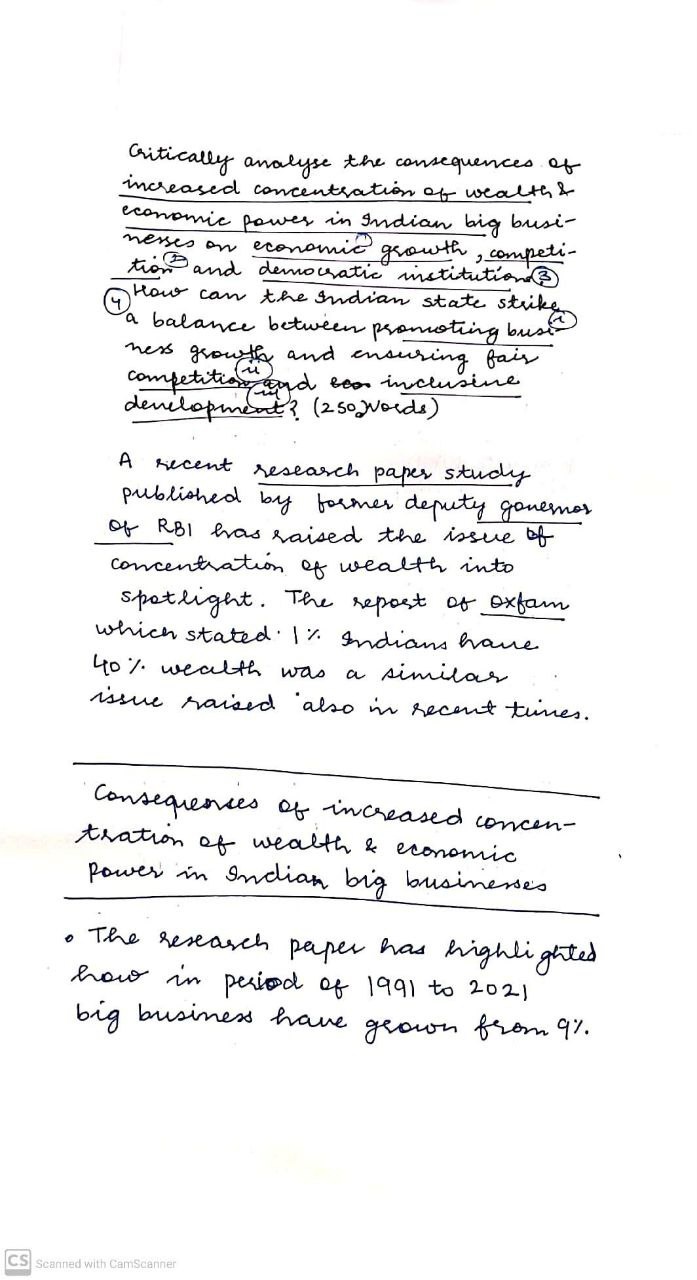 Critically analyse the consequences of
increased concentration of wealth &
economic power in Indian big busi-
nesses on economic ① growth, competi-
tion ② and democratic institutions ③
④ How can the Indian state strike
a balance between promoting busi- ⓘ
ness growth and ensuring fair
competition ⓘⓘ and eco inclusive
development? ⓘⓘⓘ (250 Words)
A recent research paper study
published by former deputy governor
of RBI has raised the issue of
concentration of wealth into
spotlight. The report of Oxfam
which stated 1% Indians have
40% wealth was a similar
issue raised also in recent times.
Consequences of increased concen-
tration of wealth & economic
Power in Indian big businesses
• The research paper has highlighted
how in period of 1991 to 2021
big business have grown from 9%.
CS Scanned with CamScanner